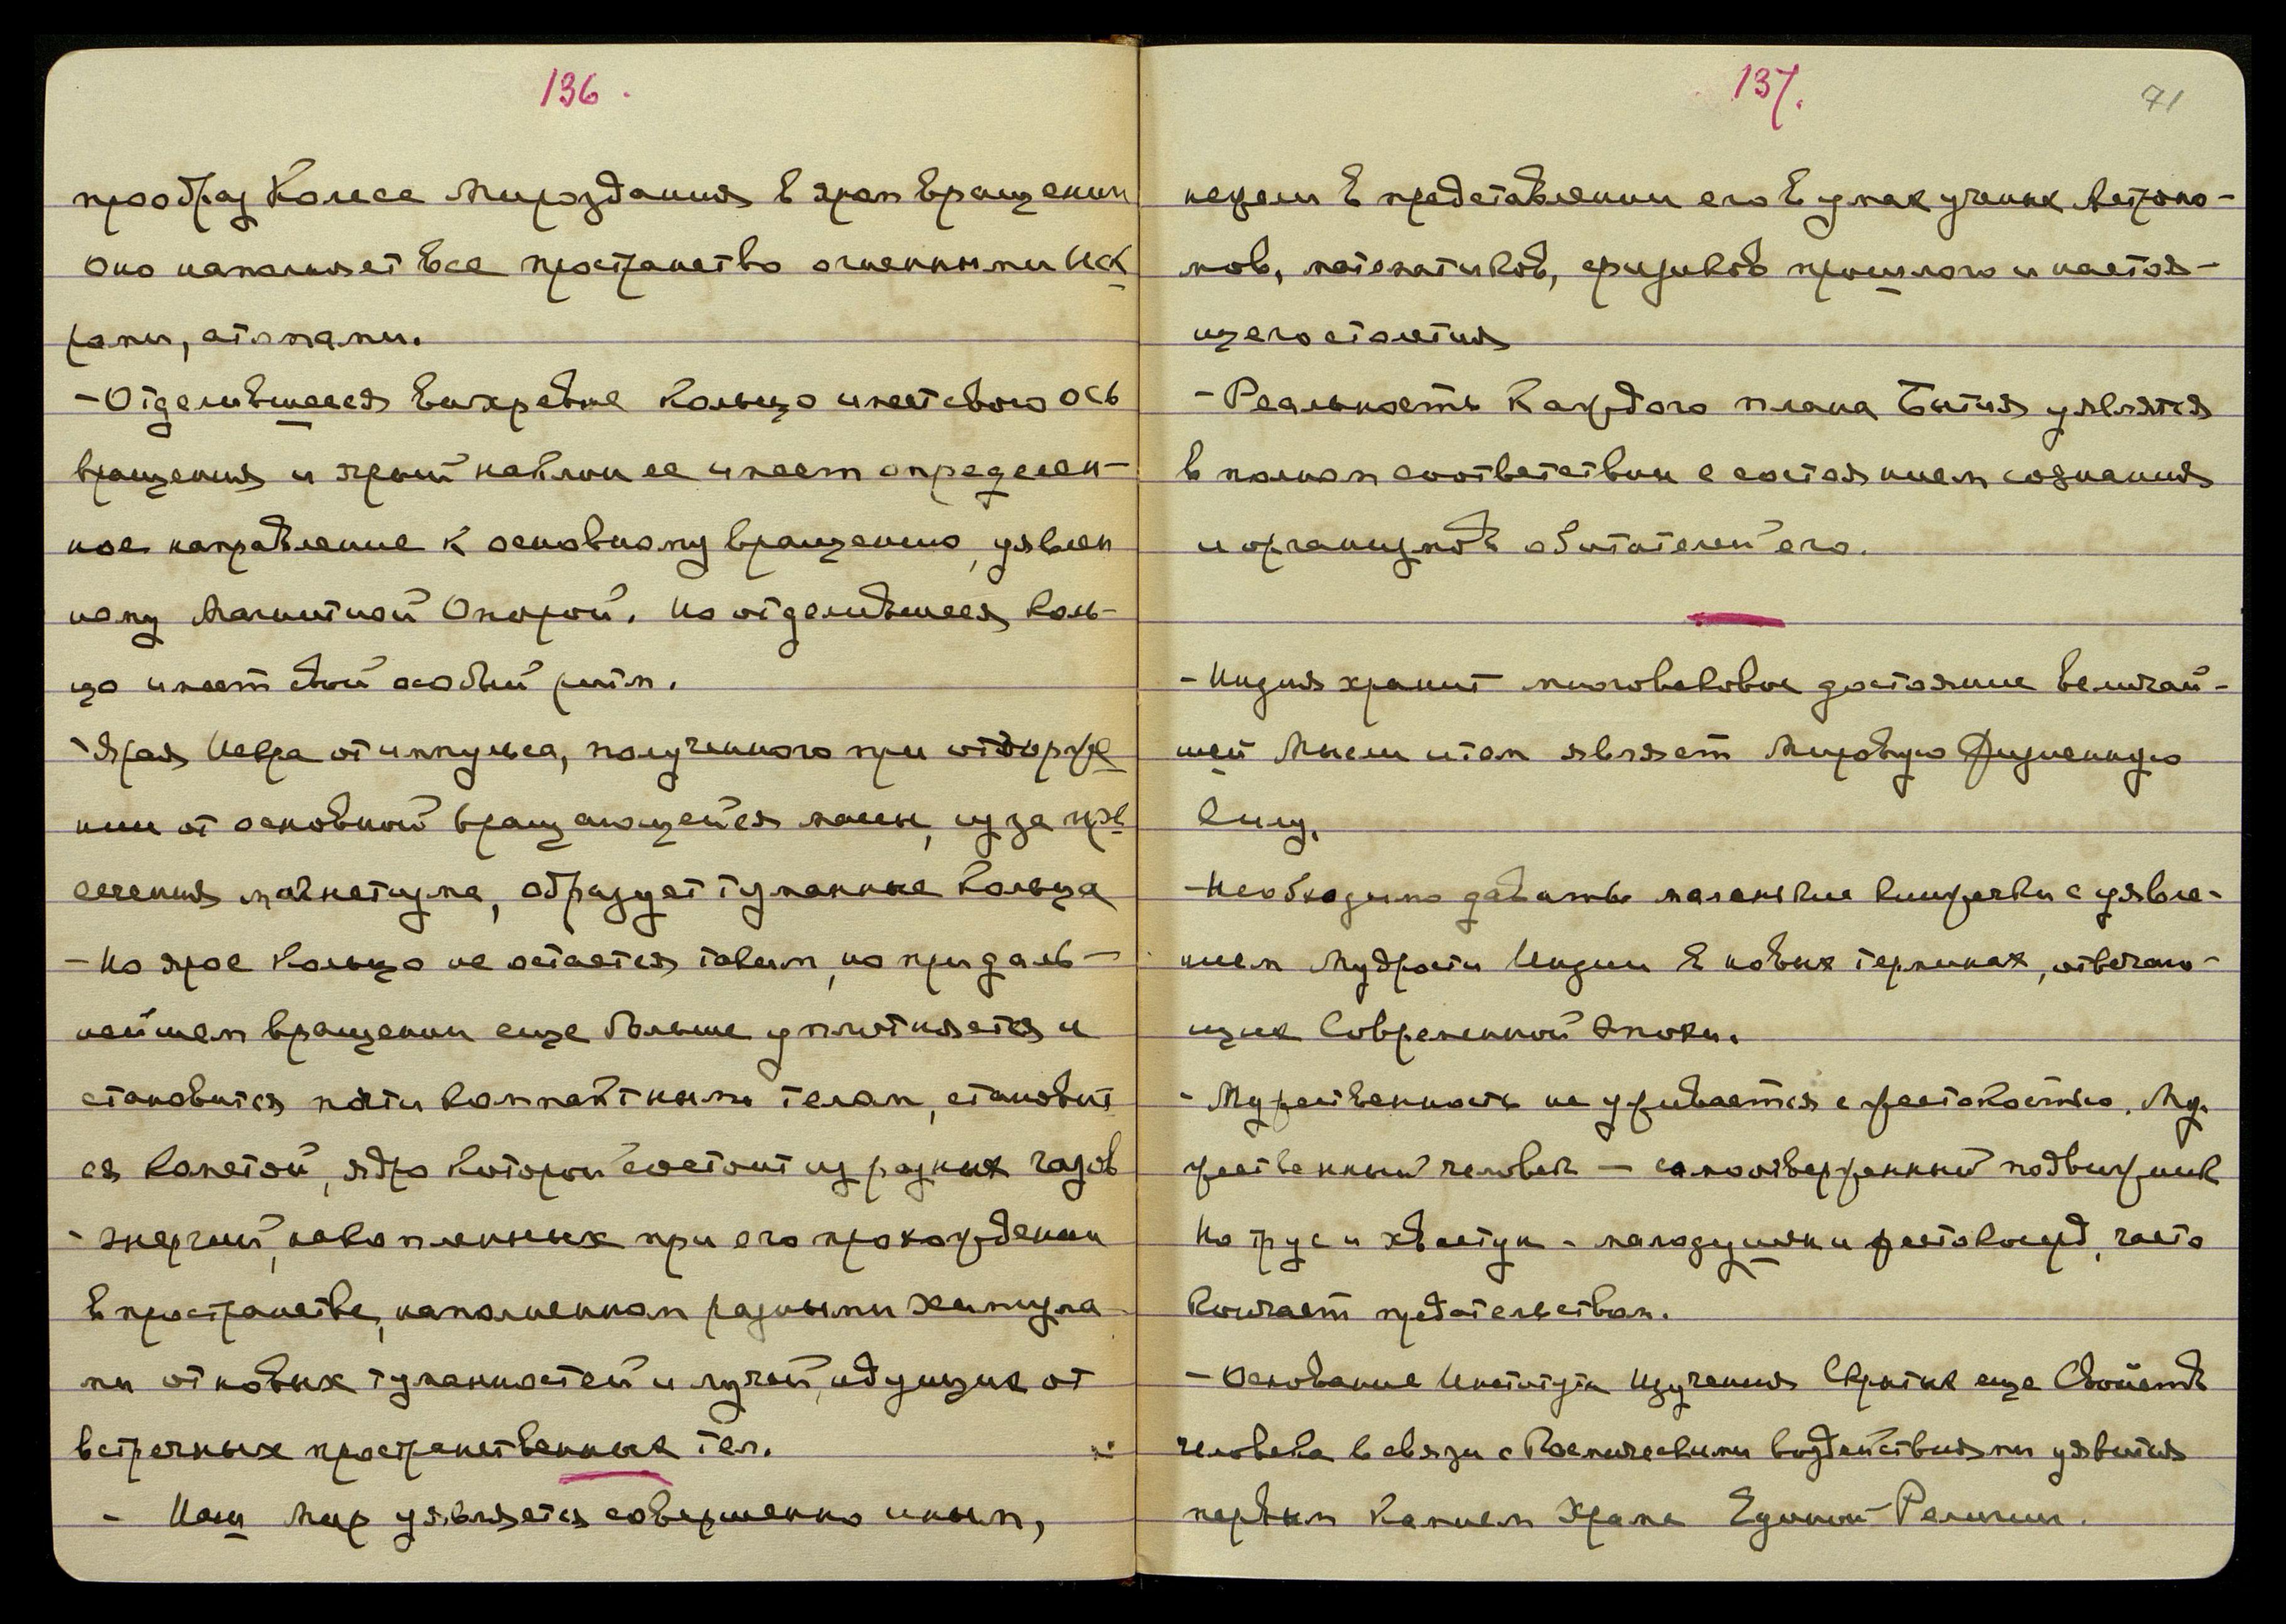 136.
прообраз Колеса Мироздания в яром вращении
Оно наполняет все пространство огненными Иск
рами, атомами.
- Отделившееся вихревое кольцо имеет свою ось
вращения и ярый наклон ее имеет определен-
ное направление к основному вращению, уявлен
ному Магнитной Опорой. Но отделившееся коль-
цо имеет свой особый ритм.
- Ярая Искра от импульса, полученного при отторже
нии от основной вращающейся массы, из за пре
сечения магнетизма, образует туманные кольца
- Но ярое кольцо не остается таким, но при даль-
нейшем вращении еще больше уплотняется и
становится почти компактным телом, становит
ся кометой, ядро которой состоит из разных газов
- энергий, накопленных при его прохождении
в пространстве, наполненном разными химизма
ми от новых туманностей и лучей, идущих от
встречных пространственных тел.
- Наш Мир уявляется совершенно иным,
137.
71
нежели в представлении его в умах ученых Астроно-
мов, математиков, физиков прошлого и настоя-
щего столетия
- Реальность каждого плана Бытия уявляется
в полном соответствии с состоянием сознания
и организмов обитателей его.
- Индия хранит многовековое достояние величай-
шей Мысли и тем являет Мировую Жизненную
Силу.
- Необходимо давать маленькие книжечки с уявле-
нием Мудрости Индии в новых терминах, отвечаю-
щих Современной Эпохи.
- Мужественность не уживается с жестокостью. Му-
жественный человек — самоотверженный подвижник
Но трус и хвастун - малодушен и жестокосерд, часто
кончает предательством.
- Основание Института Изучения Скрытых еще Свойств
человека в связи с Космическими воздействиями уявится
первым Камнем Храма Единой Религии.